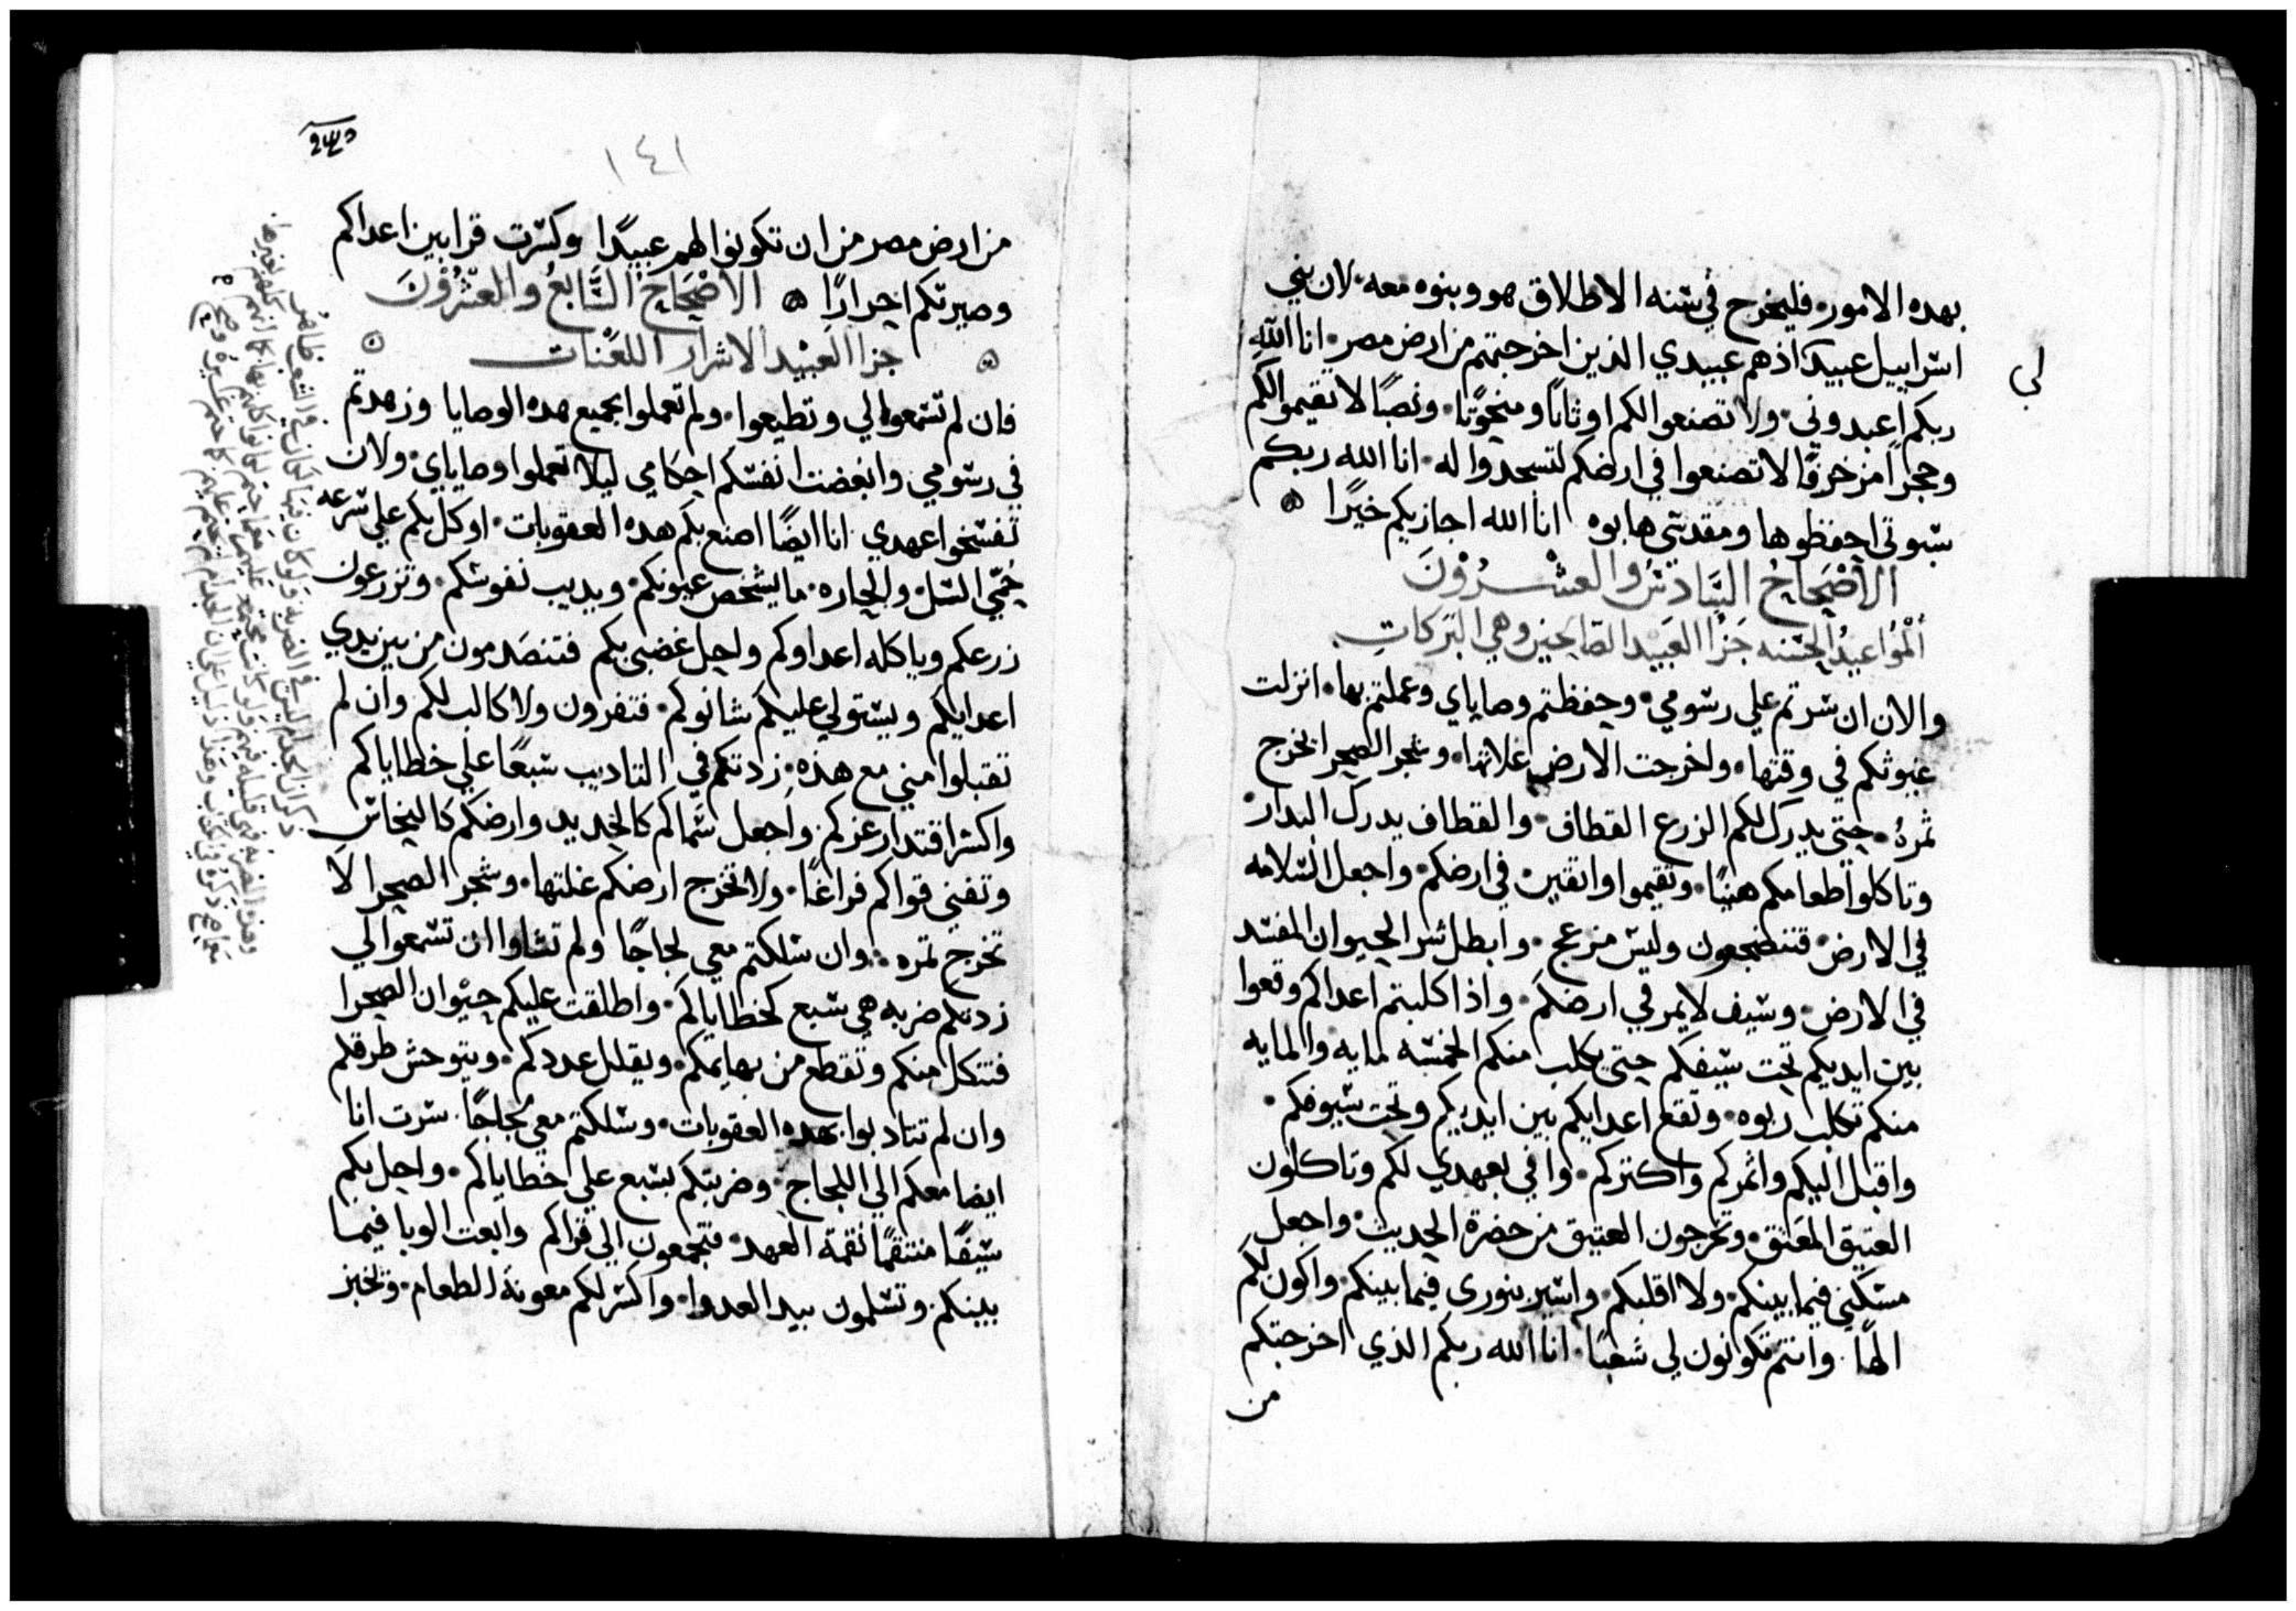 بهده الامور٠ فليخرج في سنه الاطلاق هو وبنوه معه٠ لان بني
لي
اسراييل عبيدًا اذ هم عبيدي الذين اخرجتهم من ارض مصر٠ انا الله
ربكم اعبدوني٠ ولا تصنعوا لكم اوثانًا ومنحوتًا٠ ونصبًا لا تقيموا لكم
وحجرًا مزخرفًا لا تصنعوا في ارضكم لتسجدوا له٠ انا الله ربكم
سبوتي احفظوها ومقدسي هابوه انا الله اجازيكم خيرًا ۞
الاصْحَاحُ السَّادسُ والعشْرُوْنَ
الموَاعيدُ الحسَنه جَزا العَبيد الصَالحين وهي البَركات
والان ان سرتم علي رسومي٠ وحفظتم وصاياي وعملتم بها٠ انزلت
غيوثكم في وقتها٠ واخرجت الارض غلاتها٠ وشجر الصحرا تخرج
ثمره٠ حتي يدرك لكم الزرع القطاف٠ والقطاف يدرك البدار
وتاكلوا طعامكم هنيًا٠ وتقيموا واثقين في ارضكم٠ واجعل السلامه
في الارض٠ فتنضجعون وليس مزعج٠ وابطل شر الحيوان المفسد
في الارض٠ وسيف لا يمر في ارضكم٠ واذا كلبتم اعداكم وقعوا
بين ايديكم تحت سيفكم حتي تكلب منكم الخمسه لمايه والمايه
منكم تكلب ربوه٠ وتقع اعدايكم بين ايديكم وتحت سيوفكم٠
واقبل اليكم واثمركم واكثركم٠ واوفي بعهدي لكم وتاكلون
العتيق المعَتق٠ وتخرجون العتيق من حضرة الحديث٠ واجعل
مسكني فيما بينكم٠ ولا اقلبكم٠ واسير بنوري فيما بينكم٠ واكون لكم
الهًا٠ وانتم تكونون لي شعبًا٠ انا الله ربكم الذي اخرجتكم
من
١٤١
من ارض مصر من ان تكونوا لهم عبيدًا وكسرت قرابين اعداكم
وصيرتكم احرارًا ۞ الاصْحَاحُ السَّابعُ والعشْرُوْنَ
جزا العَبيد الاشرار اللعْنات
فان لم تسمعوا لي وتطيعوا٠ ولم تعملوا بجميع هده الوصايا وزهدتم
في رسومي وابغضت انفسكم احكامي ليلا تعملوا وصاياي٠ ولان
تفسخوا عهدي انا ايضًا اصنع بكم هده العقوبات٠ اوكل بكم علي سرعه
حُمّي السل٠ والحاره٠ ما يشخص عيونكم٠ ويديب نفوسكم٠ وتزرعون
زرعكم وياكله اعداوكم واحل غضبي بكم فتنصَدمون من بين يدي
اعدايكم ويستولي عليكم شانوكم٠ فتفرون ولا كالب لكم وان لم
تقبلوا مني مع هده٠ زدتكم في التاديب سبعًا علي خطاياكم
واكسر اقتدار عزكم٠ واجعل سماكم كالحديد وارضكم كالنحاس
وتفني قواكم فراغًا٠ ولا تخرج ارضكم غلتها٠ وشجر الصحرا لا
تخرج ثمره٠ وان سلكتم معي لجاجًا ولم تشاوا ان تسمعوا لي
زدتكم ضربه هي سبع كخطاياكم٠ واطلقت عليكم حيْوان الصحرا
فتتكل منكم وتقطع من بهايمكم٠ ويقلل عددكم٠ ويتوحش طرقكم
وان لم تتادبوا بهده العقوبات٠ وسلكتم معي لجاجًا٠ سرت انا
ايضا معكم الي اللجاج٠ وضربتكم بسبع علي خطاياكم٠ واحل بكم
سيفًا منتقمًا نقمة العهد٠ فتجمعون الي قراكم وابعت الوبا فيما
بينكم٠ وتسلمون بيد العدوا٠ واكسر لكم معونة الطعام٠ وتخبز